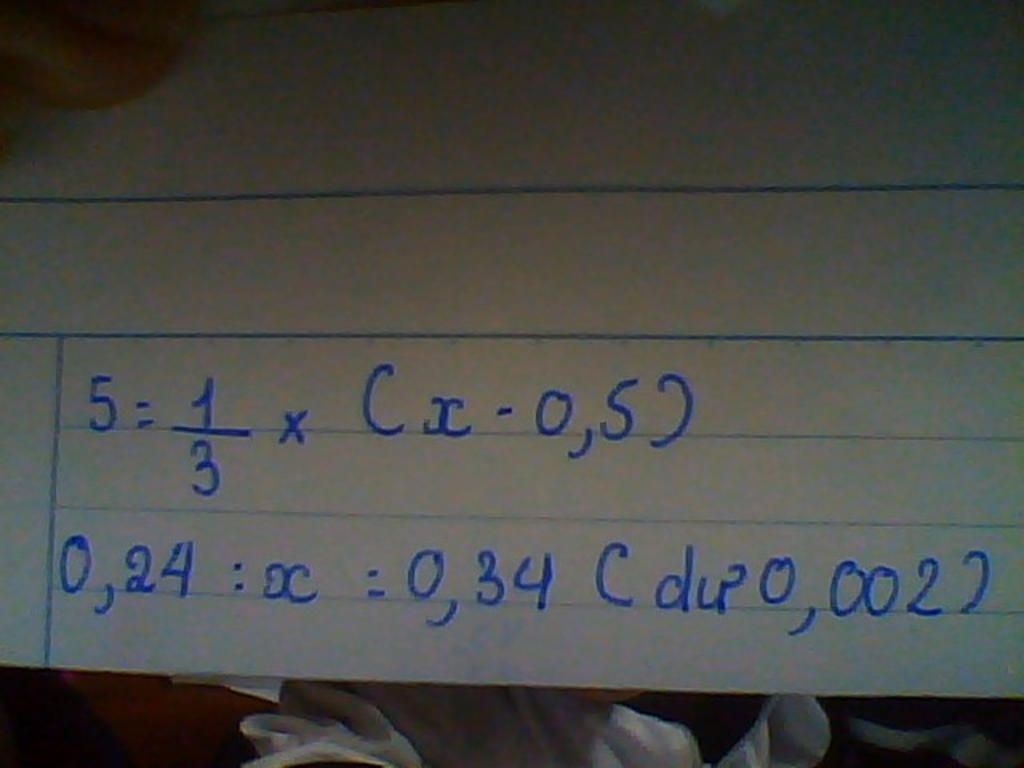 5 = 1/3 x (x - 0,5)
0,24 : x = 0,34 (dư 0,002)